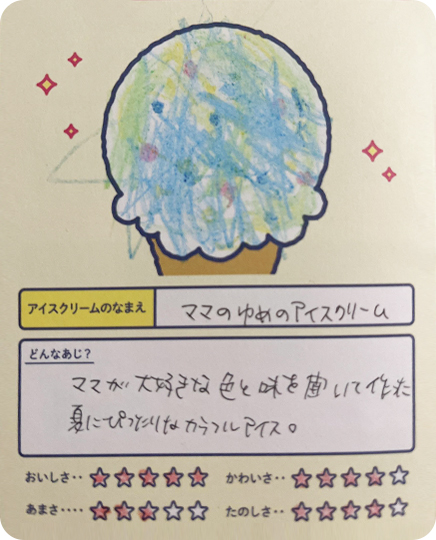 アイスクリームのなまえ ママのゆめのアイスクリーム
どんなあじ？
ママが大好きな色と味を聞いて作った
夏にぴったりなカラフルアイス。
おいしさ‥ ★★★★★ かわいさ‥ ★★★★☆
あまさ‥‥ ★★★☆☆ たのしさ‥ ★★★★☆